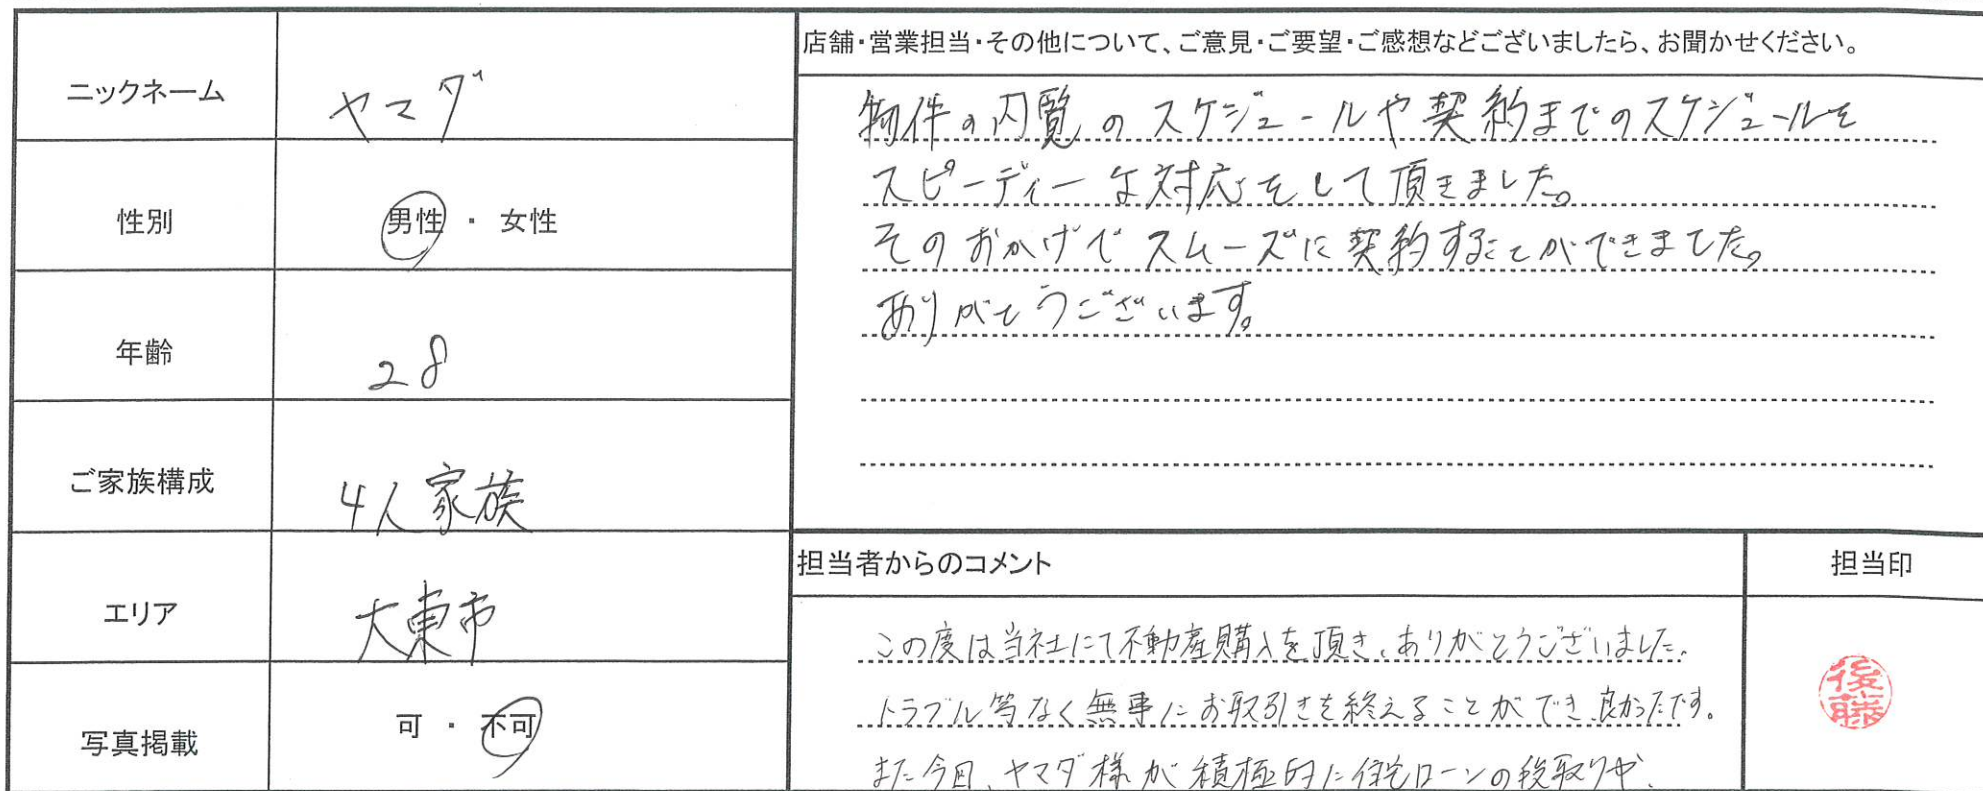 ニックネーム
ヤマダ
性別
男性 ・ 女性
年齢
28
ご家族構成
4人家族
エリア
大東市
写真掲載
可 ・ 不可
店舗・営業担当・その他について、ご意見・ご要望・ご感想などございましたら、お聞かせください。
物件の内覧のスケジュールや契約までのスケジュールを
スピーディーな対応をして頂きました。
そのおかげでスムーズに契約することができました。
ありがとうございます。
担当者からのコメント
この度は当社にて不動産購入を頂き、ありがとうございました。
トラブル等なく無事にお取引きを終えることができ、良かったです。
また今回、ヤマダ様が積極的に住宅ローンの段取りや、
担当印
後藤